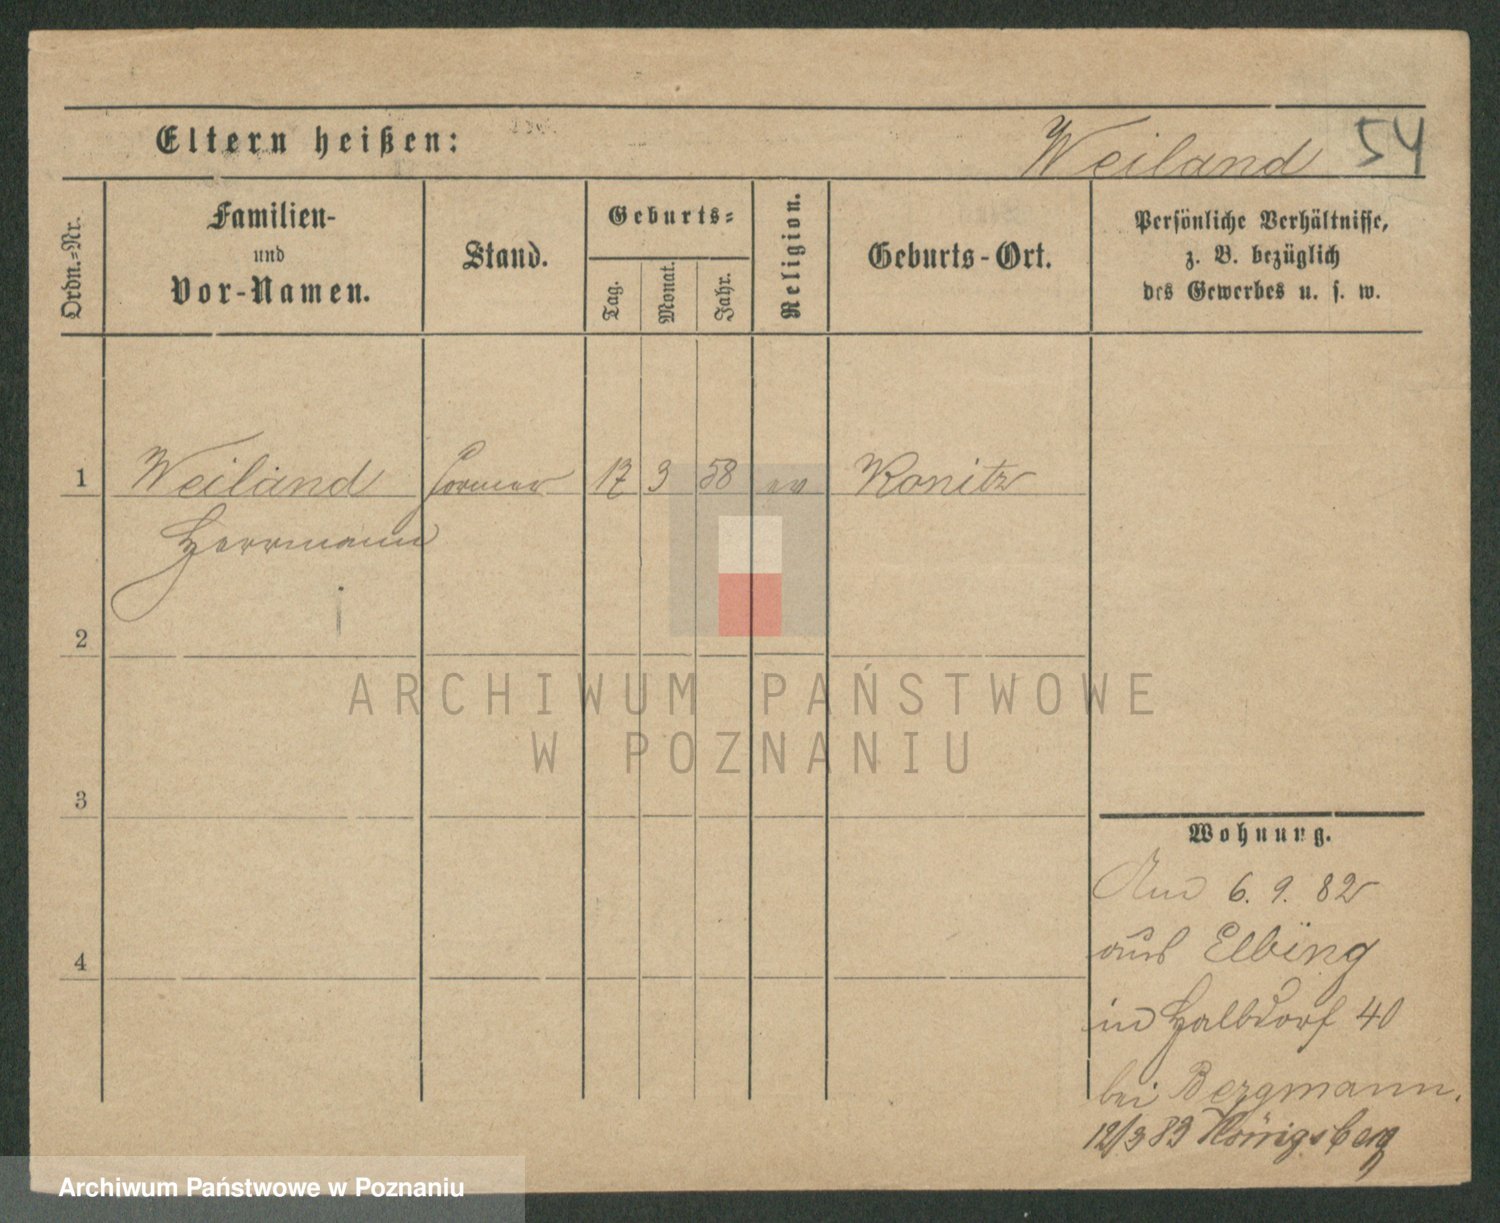 Eltern heißen:
Weiland 54
Ordn.-Nr.
Familien-
und
Vor-Namen.
Stand.
Geburts-
Tag.
Monat.
Jahr.
Religion.
Geburts-Ort.
Persönliche Verhältnisse,
z. B. bezüglich
des Gewerbes u. s. w.
1 Weiland Former 17 3 58 ev Konitz
Herrmann
2
3
4
Wohnung.
Am 6. 9. 82
aus Elbing
in Halbdorf 40
bei Bergmann.
12/3 83 Königsberg
ARCHIWUM PAŃSTWOWE
W POZNANIU
Archiwum Państwowe w Poznaniu